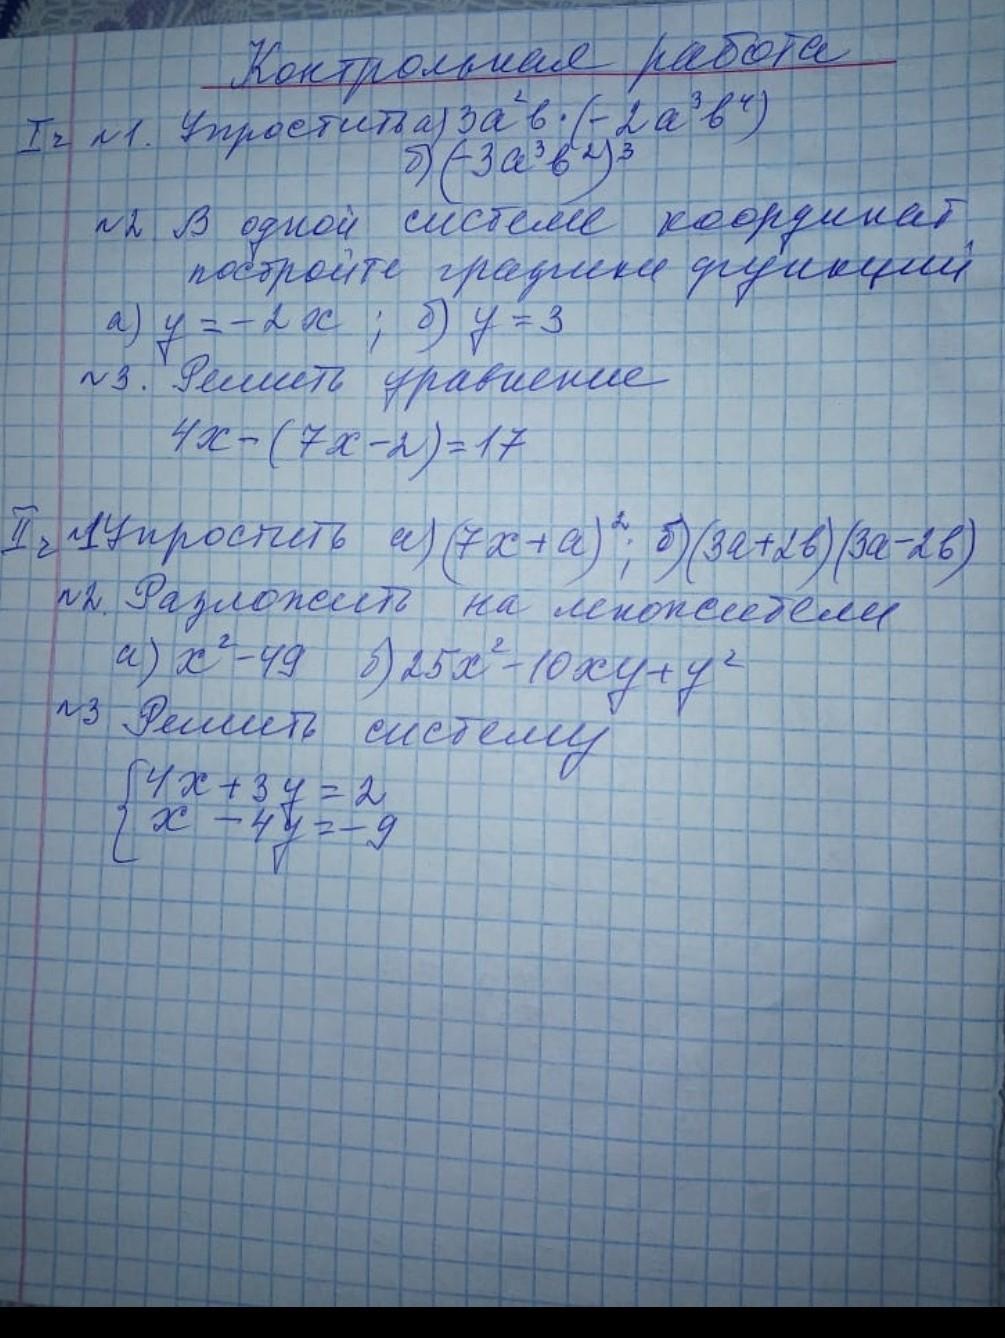 Контрольная работа
Iч №1. Упростить а) 3a²b · (-2a³b⁴)
б) (-3a³b²)³
№2 В одной системе координат
постройте графики функций
а) y = -2x ; б) y = 3
№3. Решить уравнение
4x - (7x - 2) = 17
IIч №1 Упростить а) (7x + a)²; б) (3a+2b)(3a-2b)
№2. Разложить на множители
а) x² - 49 б) 25x² - 10xy + y²
№3 Решить систему
{4x + 3y = 2
x - 4y = -9